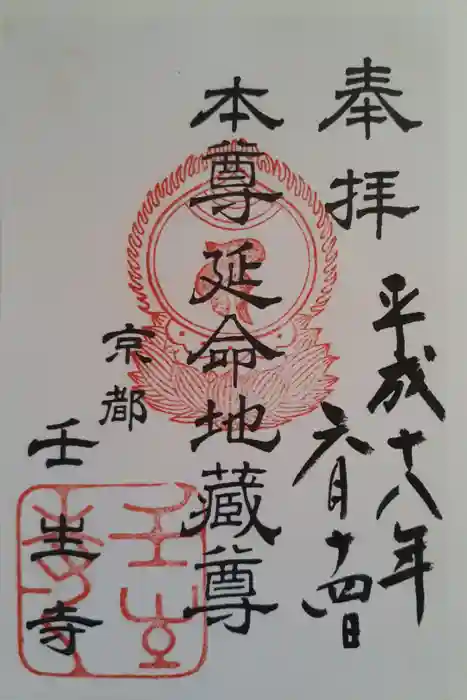 奉拝
平成十八年
六月十四日
本尊延命地蔵尊
京都
壬生寺